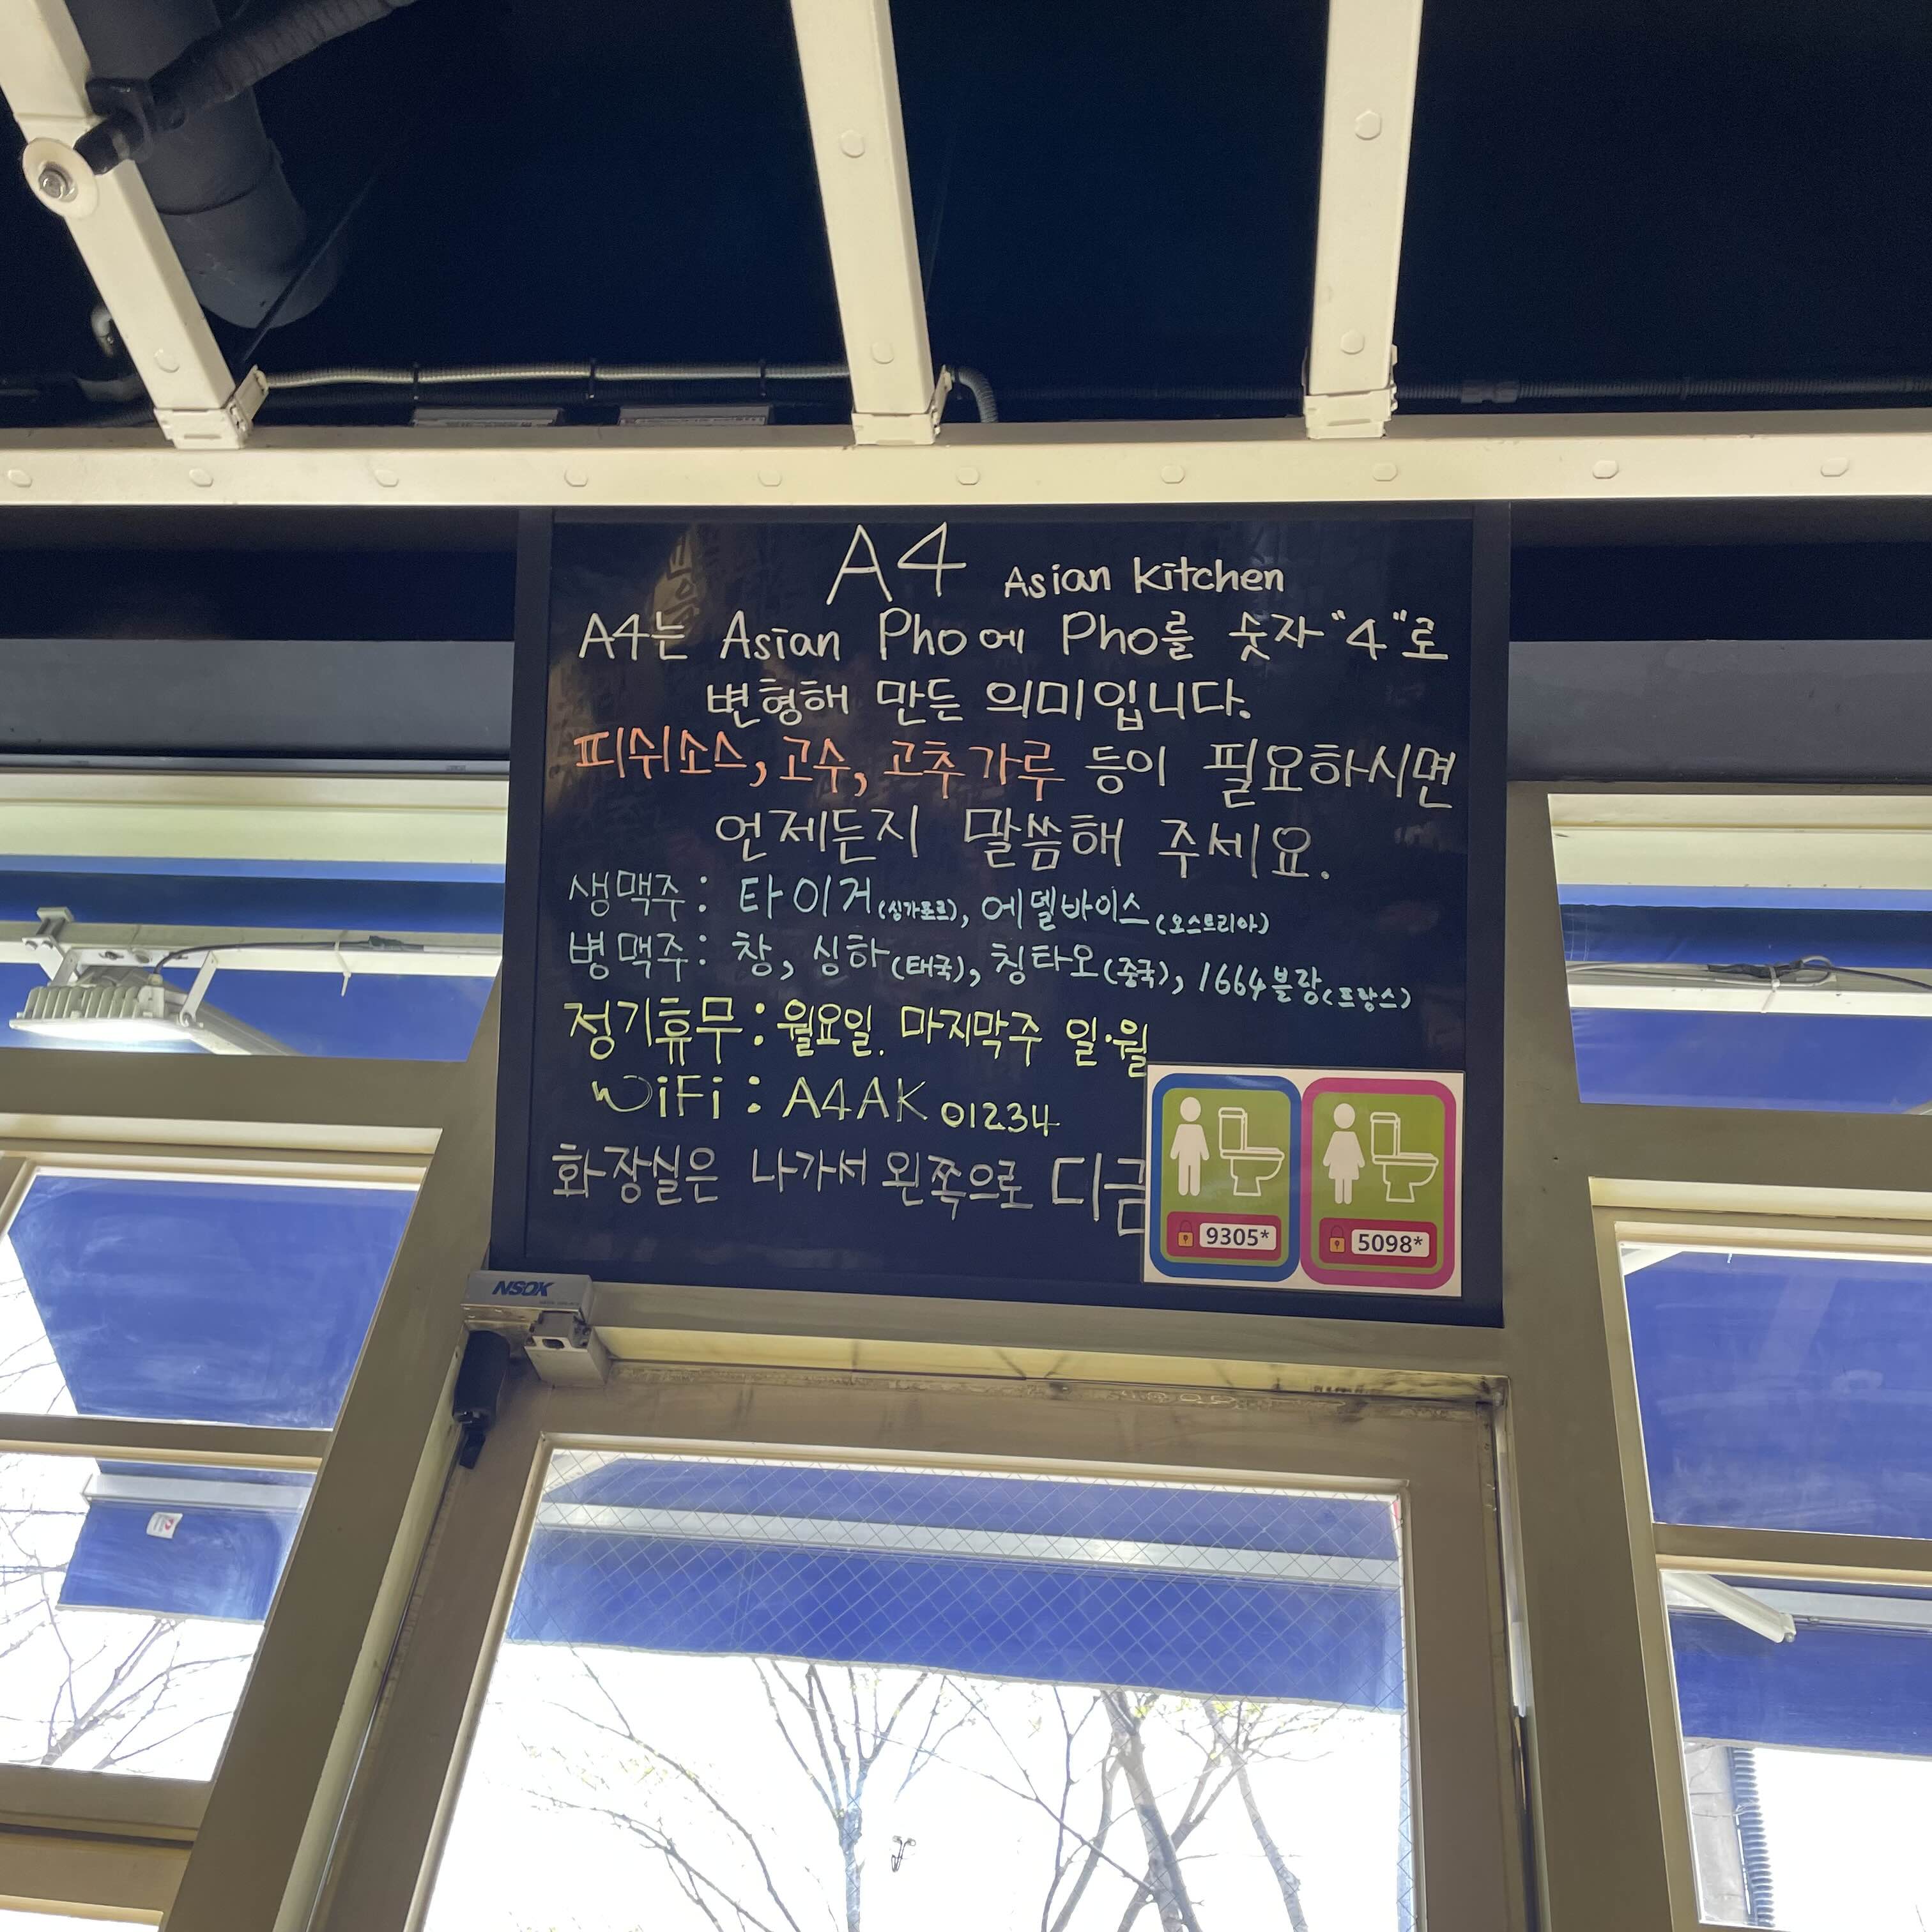 A4 Asian Kitchen
A4는 Asian Pho에 Pho를 숫자 "4"로
변형해 만든 의미입니다.
피쉬소스, 고수, 고추가루 등이 필요하시면
언제든지 말씀해 주세요.
생맥주: 타이거(싱가포르), 에델바이스(오스트리아)
병맥주: 창, 싱하(태국), 칭타오(중국), 1664블랑(프랑스)
정기휴무: 월요일. 마지막주 일·월
WiFi: A4AK 01234
화장실은 나가서 왼쪽으로 디금
9305*
5098*
NSOK